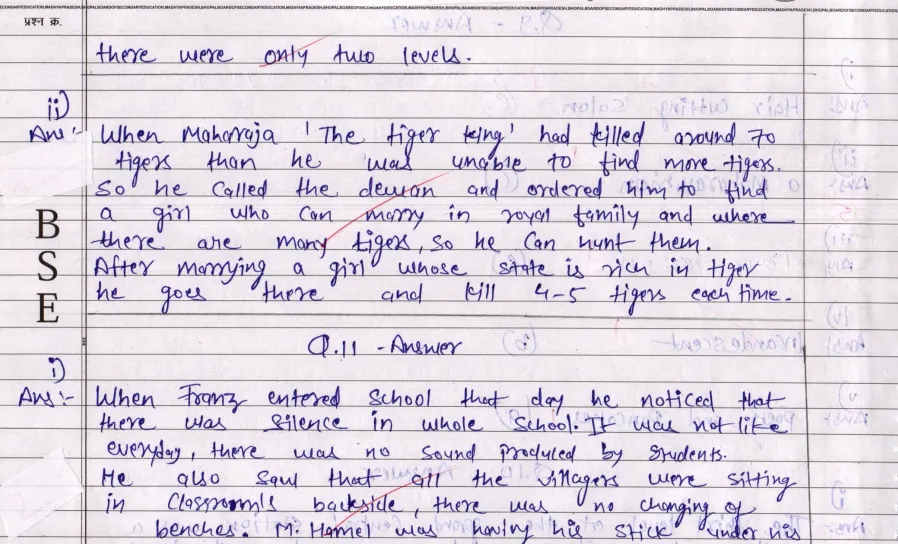 प्रश्न क्र.
there were only two levels.
ii)
Ans :- When Maharaja 'The tiger king' had killed around 70
tigers than he was unable to find more tigers.
So he called the dewan and ordered him to find
a girl who can marry in royal family and where
there are many tigers, so he can hunt them.
After marrying a girl whose state is rich in tiger
he goes there and kill 4-5 tigers each time.
B
S
E
Q.11 - Answer
i)
Ans :- When Franz entered school that day he noticed that
there was silence in whole school. It was not like
everyday, there was no sound produced by students.
He also saw that all the villagers were sitting
in classroom's backside, there was no changing of
benches. M. Hamel was having his stick under his